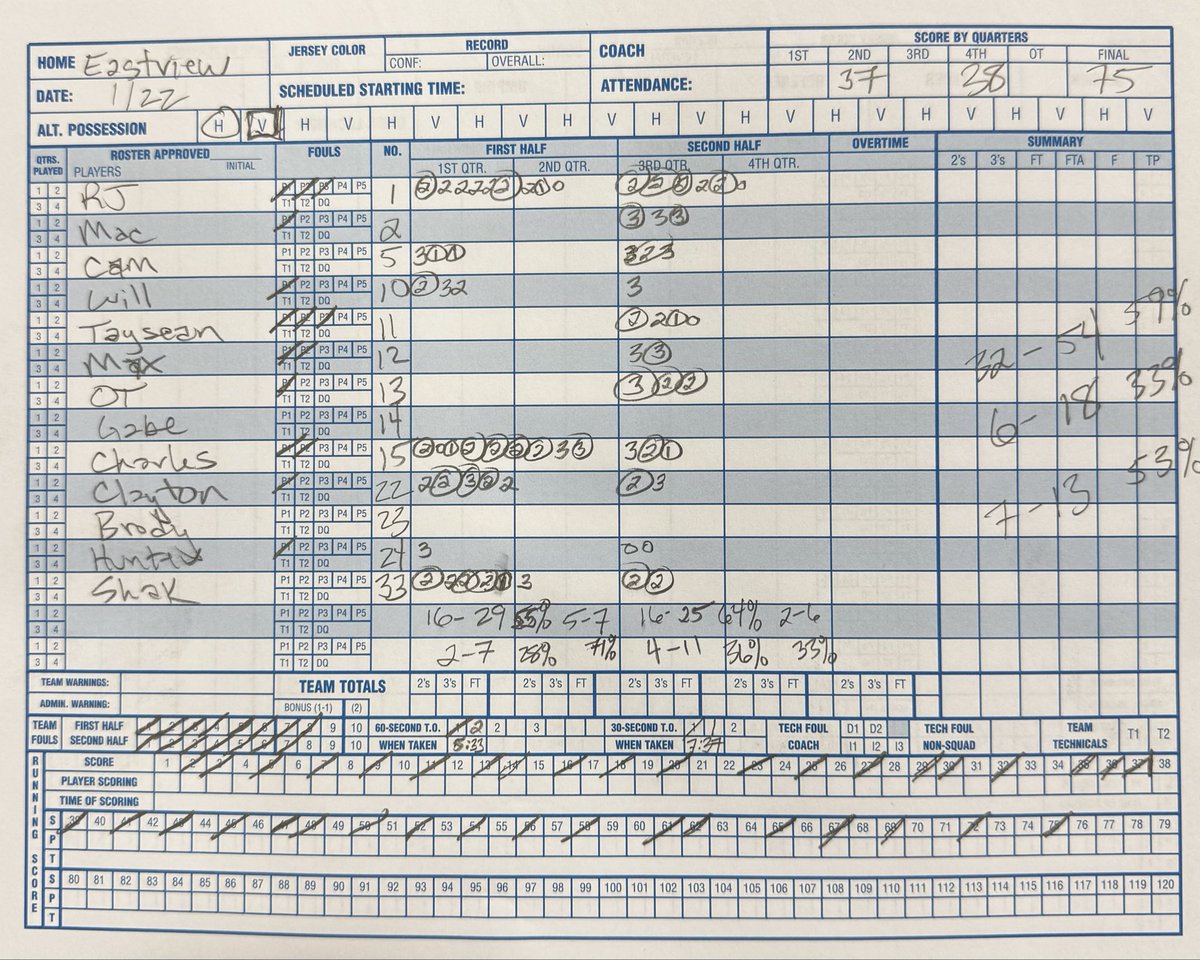 HOME Eastview JERSEY COLOR RECORD COACH SCORE BY QUARTERS
CONF: OVERALL: 1ST 2ND 3RD 4TH OT FINAL
DATE: 1/22 SCHEDULED STARTING TIME: ATTENDANCE: 37 38 75
ALT. POSSESSION H V H V H V H V H V H V H V H V H V H V H V
QTRS. PLAYED ROSTER APPROVED INITIAL FOULS NO. FIRST HALF SECOND HALF OVERTIME SUMMARY
PLAYERS 1ST QTR. 2ND QTR. 3RD QTR. 4TH QTR. 2's 3's FT FTA F TP
1 2 3 4 RJ P1 P2 P3 P4 P5 T1 T2 DQ 1
1 2 3 4 Mac P1 P2 P3 P4 P5 T1 T2 DQ 2 3 3 3
1 2 3 4 Cam P1 P2 P3 P4 P5 T1 T2 DQ 5 3 1 1 3 2 3
1 2 3 4 Will P1 P2 P3 P4 P5 T1 T2 DQ 10 2 3 2 3
1 2 3 4 Taysean P1 P2 P3 P4 P5 T1 T2 DQ 11 2 2 1 0 59%
1 2 3 4 Max P1 P2 P3 P4 P5 T1 T2 DQ 12 3 3 32-54
1 2 3 4 OT P1 P2 P3 P4 P5 T1 T2 DQ 13 3 2 2 33%
1 2 3 4 Gabe P1 P2 P3 P4 P5 T1 T2 DQ 14 6-18
1 2 3 4 Charles P1 P2 P3 P4 P5 T1 T2 DQ 15 3 2 1 53%
1 2 3 4 Clayton P1 P2 P3 P4 P5 T1 T2 DQ 22 2 2 3 2 2 2 3
1 2 3 4 Brody P1 P2 P3 P4 P5 T1 T2 DQ 23 7-13
1 2 3 4 Hunter P1 P2 P3 P4 P5 T1 T2 DQ 24 3 0 0
1 2 3 4 Shak P1 P2 P3 P4 P5 T1 T2 DQ 33 2 2
1 2 3 4 P1 P2 P3 P4 P5 T1 T2 DQ 16-29 55% 5-7 16-25 64% 2-6
1 2 3 4 P1 P2 P3 P4 P5 T1 T2 DQ 2-7 28% 71% 4-11 36% 33%
TEAM WARNINGS: TEAM TOTALS 2's 3's FT 2's 3's FT 2's 3's FT 2's 3's FT 2's 3's FT
ADMIN. WARNING: BONUS (1-1) (2)
TEAM FOULS FIRST HALF 1 2 3 4 5 6 7 8 9 10 60-SECOND T.O. 1 2 2 3 30-SECOND T.O. 1 1 2 TECH FOUL COACH D1 D2 TECH FOUL NON-SQUAD TEAM TECHNICALS T1 T2
SECOND HALF 1 2 3 4 5 6 7 8 9 10 WHEN TAKEN 5:33 WHEN TAKEN 7:37 I1 I2 I3
RUNNING SCORE
SCORE 1 2 3 4 5 6 7 8 9 10 11 12 13 14 15 16 17 18 19 20 21 22 23 24 25 26 27 28 29 30 31 32 33 34 35 36 37 38
PLAYER SCORING
TIME OF SCORING
S 39 40 41 42 43 44 45 46 47 48 49 50 51 52 53 54 55 56 57 58 59 60 61 62 63 64 65 66 67 68 69 70 71 72 73 74 75 76 77 78 79
P
T
S 80 81 82 83 84 85 86 87 88 89 90 91 92 93 94 95 96 97 98 99 100 101 102 103 104 105 106 107 108 109 110 111 112 113 114 115 116 117 118 119 120
P
T